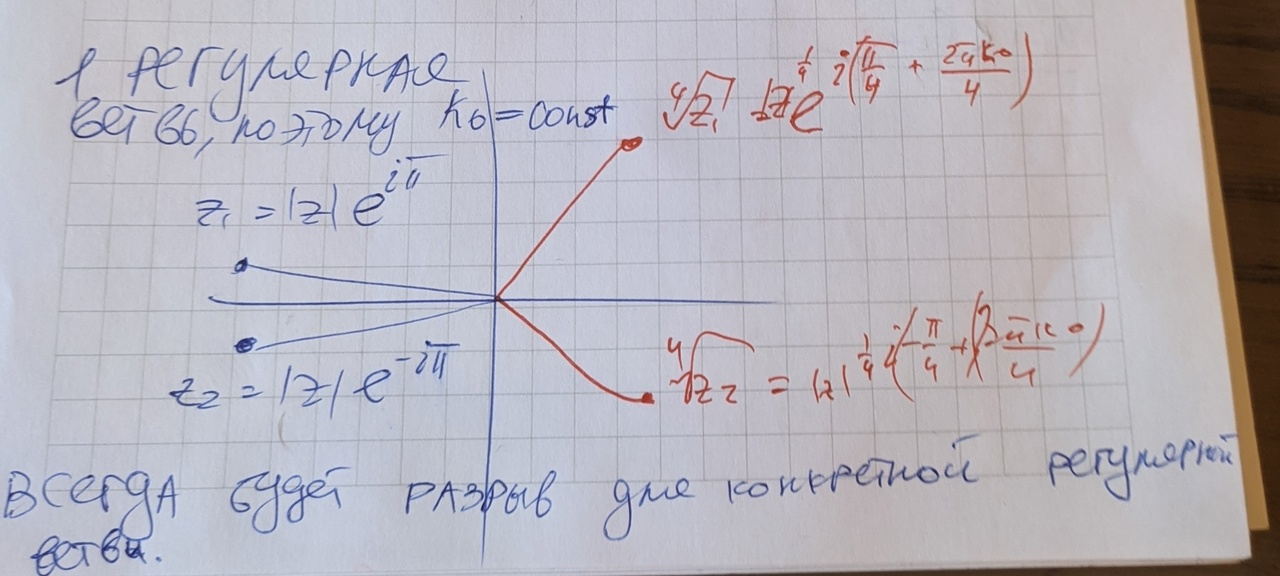 1 регулярная
ветвь, поэтому k₀ = const
∜z₁ |z|e^{1/4 i(π/4 + 2πk₀/4)}
z₁ = |z| e^{iπ}
z₂ = |z| e^{-iπ}
∜z₂ = |z|^{1/4} i(-π/4 + 2πk₀/4)
Всегда будет разрыв для конкретной регулярной
ветви.